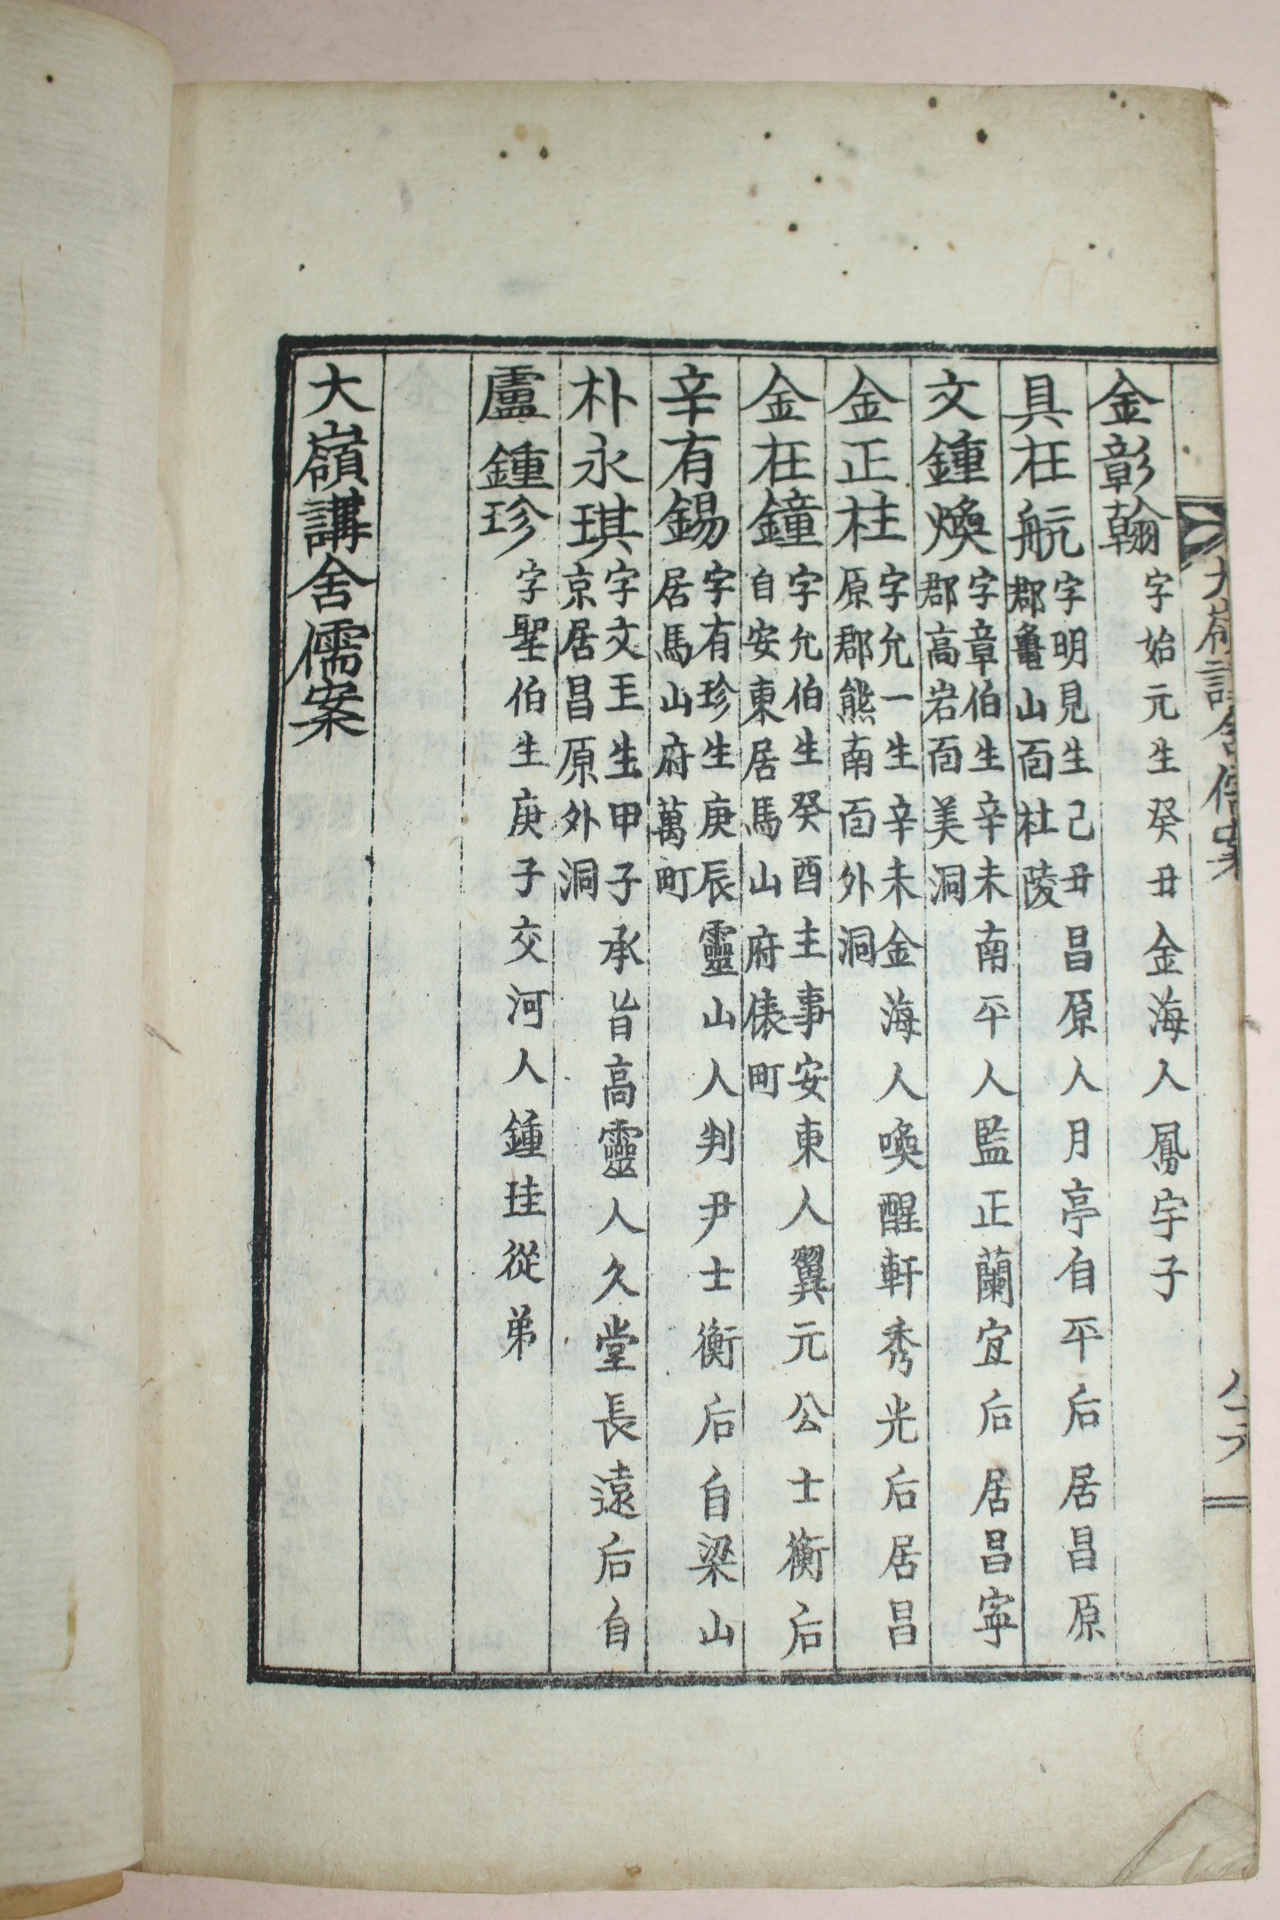 大嶺講舍儒案
金彰翰 字始元生癸丑金海人鳳宇子
具在航 字明見生己丑昌原人月亭自平后居昌原
郡龜山面杜陵
文鍾煥 字章伯生辛未南平人監正蘭宜后居昌寧
郡高岩面美洞
金正柱 字允一生辛未金海人喚醒軒秀光后居昌
原郡熊南面外洞
金在鐘 字允伯生癸酉主事安東人翼元公士衡后
自安東居馬山府俵町
辛有錫 字有珍生庚辰靈山人判尹士衡后自梁山
居馬山府萬町
朴永琪 字文玉生甲子承旨高靈人久堂長遠后自
京居昌原外洞
盧鍾珍 字聖伯生庚子交河人鍾珪從弟
大嶺講舍儒案